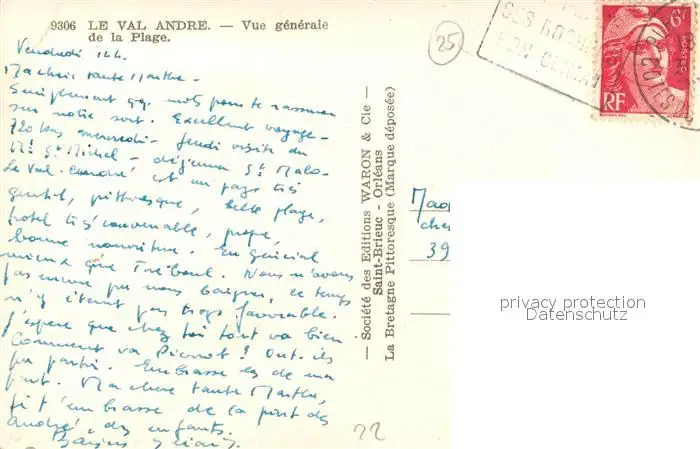 9306 LE VAL ANDRE. — Vue générale
de la Plage.
Vendredi
Ma chère tante Marthe -
Simplement qq. mots pour te rassurer
sur notre sort. Excellent voyage -
720 kms mercredi - Jeudi visite du
Mt St Michel - déjeuner St Malo -
Le Val-André est un pays très
gentil, pittoresque, belle plage,
hotel très convenable, propre,
bonne nourriture. En général
mieux que Tréboul. Nous n'avons
pas encore pu nous baigner, ce temps
n'y étant pas trop favorable.
J'espère que chez toi tout va bien
Comment va Pierrot ? Ont-ils
pu partir. Embrasse les de ma
part. Ma chère tante Marthe,
je t'embrasse de la part des
André, des enfants.
Baisers
— Société des Editions WARON & Cie —
Saint-Brieuc - Orléans
La Bretagne Pittoresque (Marque déposée)
25
SES ROCHE
SON
6F
POSTES
RF
Mad
che
39
privacy protection
Datenschutz
22